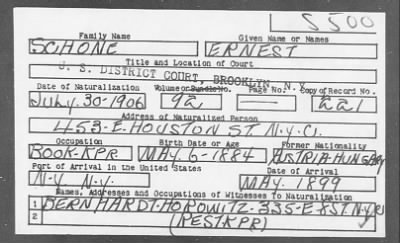 L S500
Family Name Given Name or Names
SCHONE ERNEST
Title and Location of Court
U. S. DISTRICT COURT, BROOKLYN, N.Y.
Date of Naturalization Volume or Bundle No. Page No. Copy of Record No.
JULY-30-1906 92 — 221
Address of Naturalized Person
453-E. HOUSTON ST. N.Y.C.
Occupation Birth Date or Age Former Nationality
BOOK-KPR. MAY-6-1884 AUSTRIA-HUNGARY
Port of Arrival in the United States Date of Arrival
N.Y. N.Y. MAY. 1899
Names, Addresses and Occupations of Witnesses To Naturalization
1 BERNHARDT-HOROWITZ-335-E-8 ST. N.Y.
2 (RESTKPR)